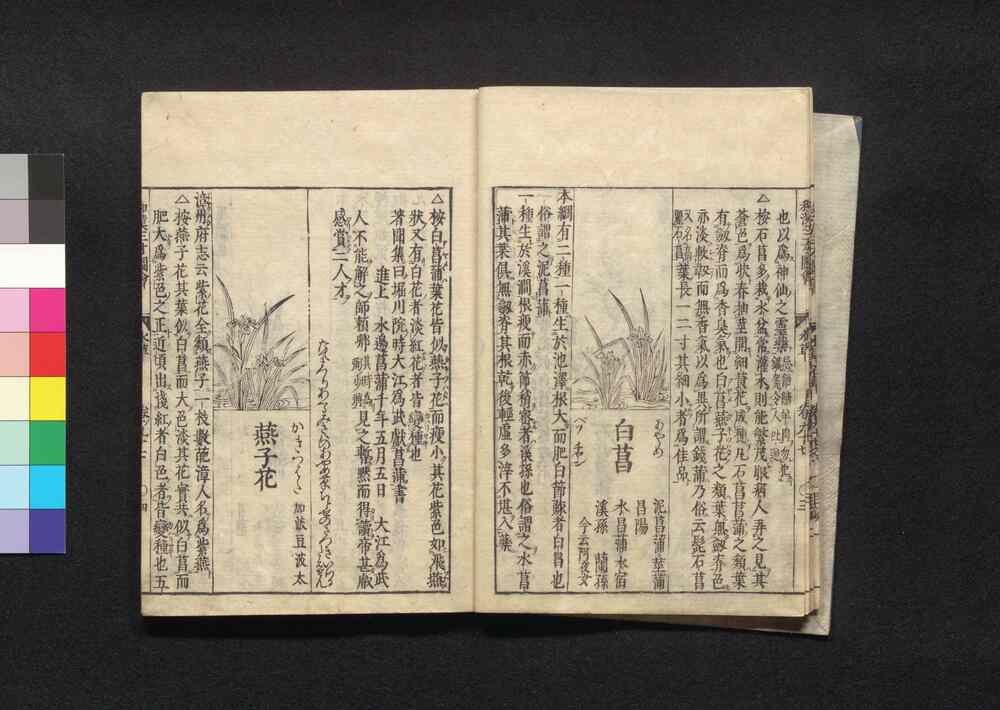 也以為神仙之靈藥
△按石菖多栽水盆常灌水則能繁茂眼病人吾之見其
蒼色為狀春抽莖開細黃花成穗凡石菖菖蒲之類葉
有劔脊而為香臭氣也白菖燕子花之類葉無劔脊色
亦淡軟靭而無香氣以為異所謂錢蒲乃俗云髭石菖
葉長一二寸其細小者為佳品
あやめ
白菖
ペツ チヤン
泥菖蒲 莖蒲
昌陽
水昌蒲 水宿
溪孫 蘭孫
今云阿夜女
本綱有二種一種生於池澤根大而肥白節疎者白昌也
俗謂之泥菖蒲
一種生於溪澗根瘦而赤節稍密者溪孫也俗謂之水菖
蒲其葉俱無劔脊其根乾後輕虛多滓不堪入藥
△按白菖蒲葉花皆似燕子花而瘦小其花紫色如飛燕
狀又有白花者淡紅花者皆變種也
著聞集曰堀川院時大江為武獻菖蒲書
進上 水邊菖蒲千年五月五日 大江為武
人不能解之師頼卿見之暫黙而得讀帝甚感
感賞二人才
かきつばた
燕子花
加岐豆波太
漳州府志云紫花全類燕子一枝數葩漳人名為紫燕
△按燕子花其葉似白菖而大色淡其花實共似白菖而
肥大為紫色之正近頃出淺紅者白色者皆變種也五